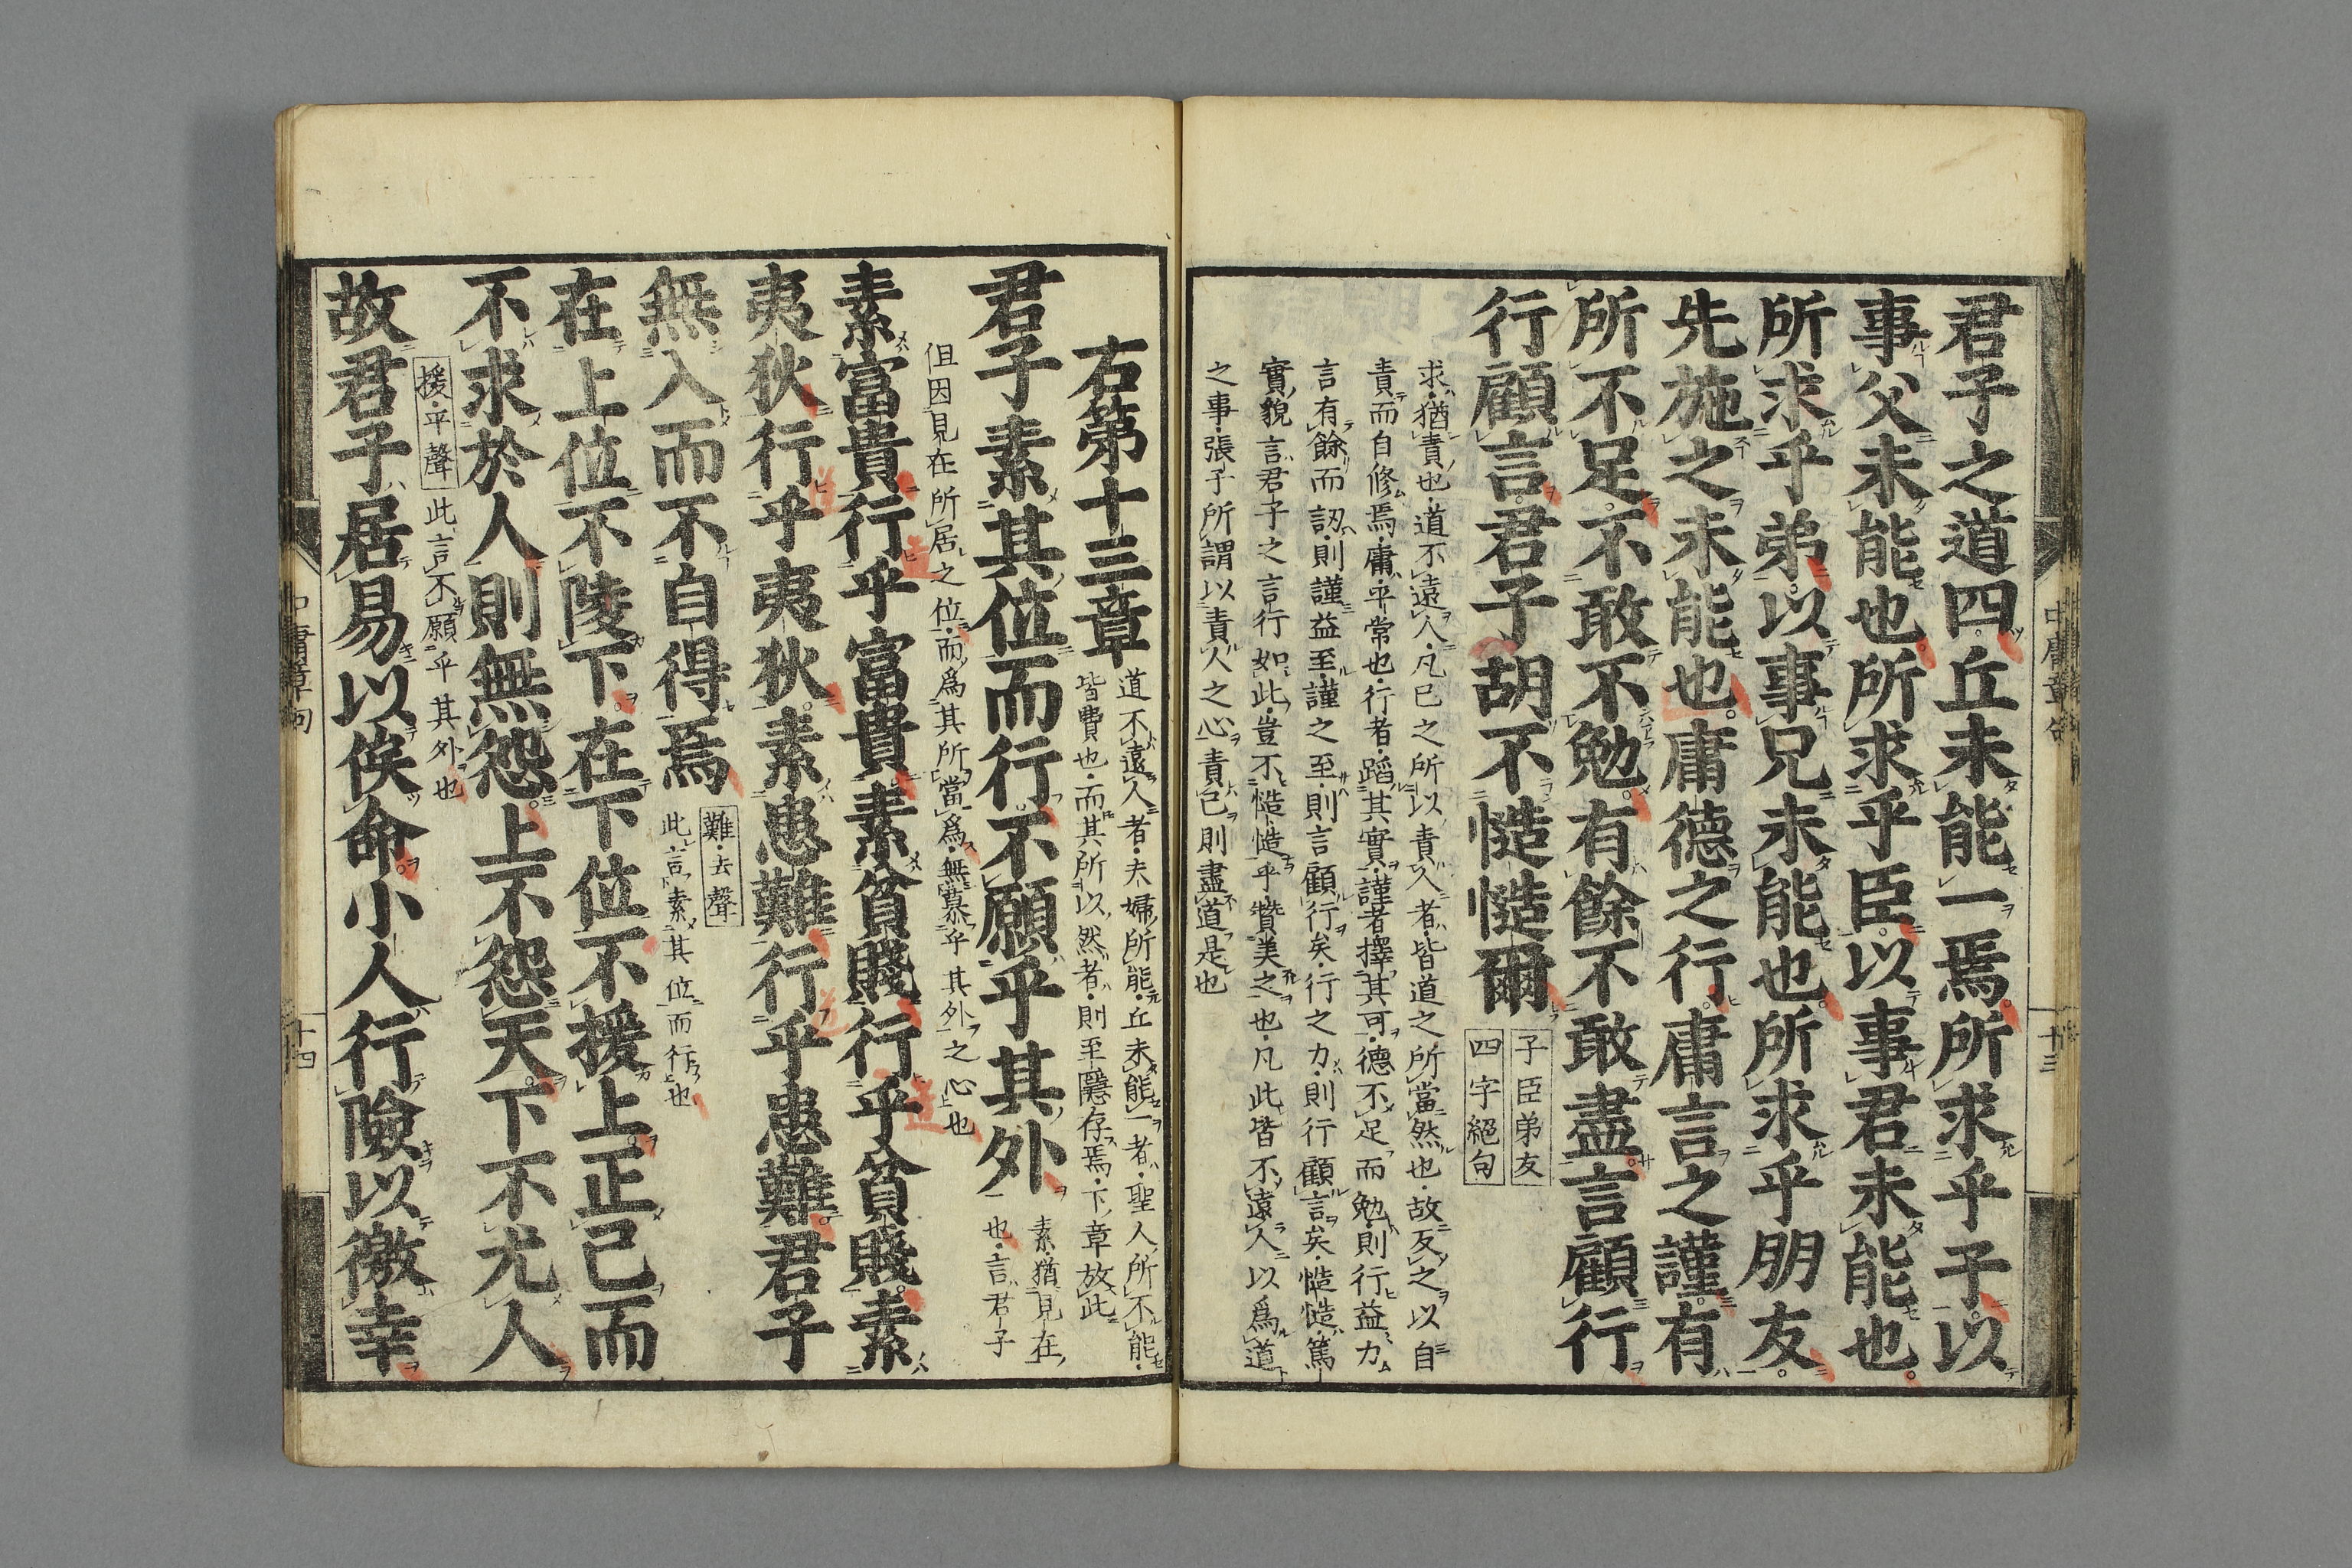 君子之道四丘未能一焉所求乎子以
事父未能也所求乎臣以事君未能也
所求乎弟以事兄未能也所求乎朋友
先施之未能也庸德之行庸言之謹有
所不足不敢不勉有餘不敢盡言顧行
行顧言君子胡不慥慥爾
子臣弟友
四字絕句
求猶責也道不遠人凡己之所以責人者皆道之所當然也故反之以自
責而自修焉庸平常也行者蹈其實謹者擇其可德不足而勉則行益力
言有餘而訒則謹益至謹之至則言顧行矣行之力則行顧言矣慥慥篤
實貌言君子之言行如此豈不慥慥乎贊美之也凡此皆不遠人以爲道
之事張子所謂以責人之心責己則盡道是也
中庸章句
十三
右第十三章
道不遠人者夫婦所能丘未能一者聖人所不能
皆費也而其所以然者則至隱存焉下章放此
君子素其位而行不願乎其外
素猶見在
也言君子
但因見在所居之位而爲其所當爲無慕乎其外之心也
素富貴行乎富貴素貧賤行乎貧賤素
夷狄行乎夷狄素患難行乎患難君子
無入而不自得焉
難去聲
此言素其位而行也
在上位不陵下在下位不援上正己而
不求於人則無怨上不怨天下不尤人
援平聲
此言不願乎其外也
故君子居易以俟命小人行險以徼幸
中庸章句
十四